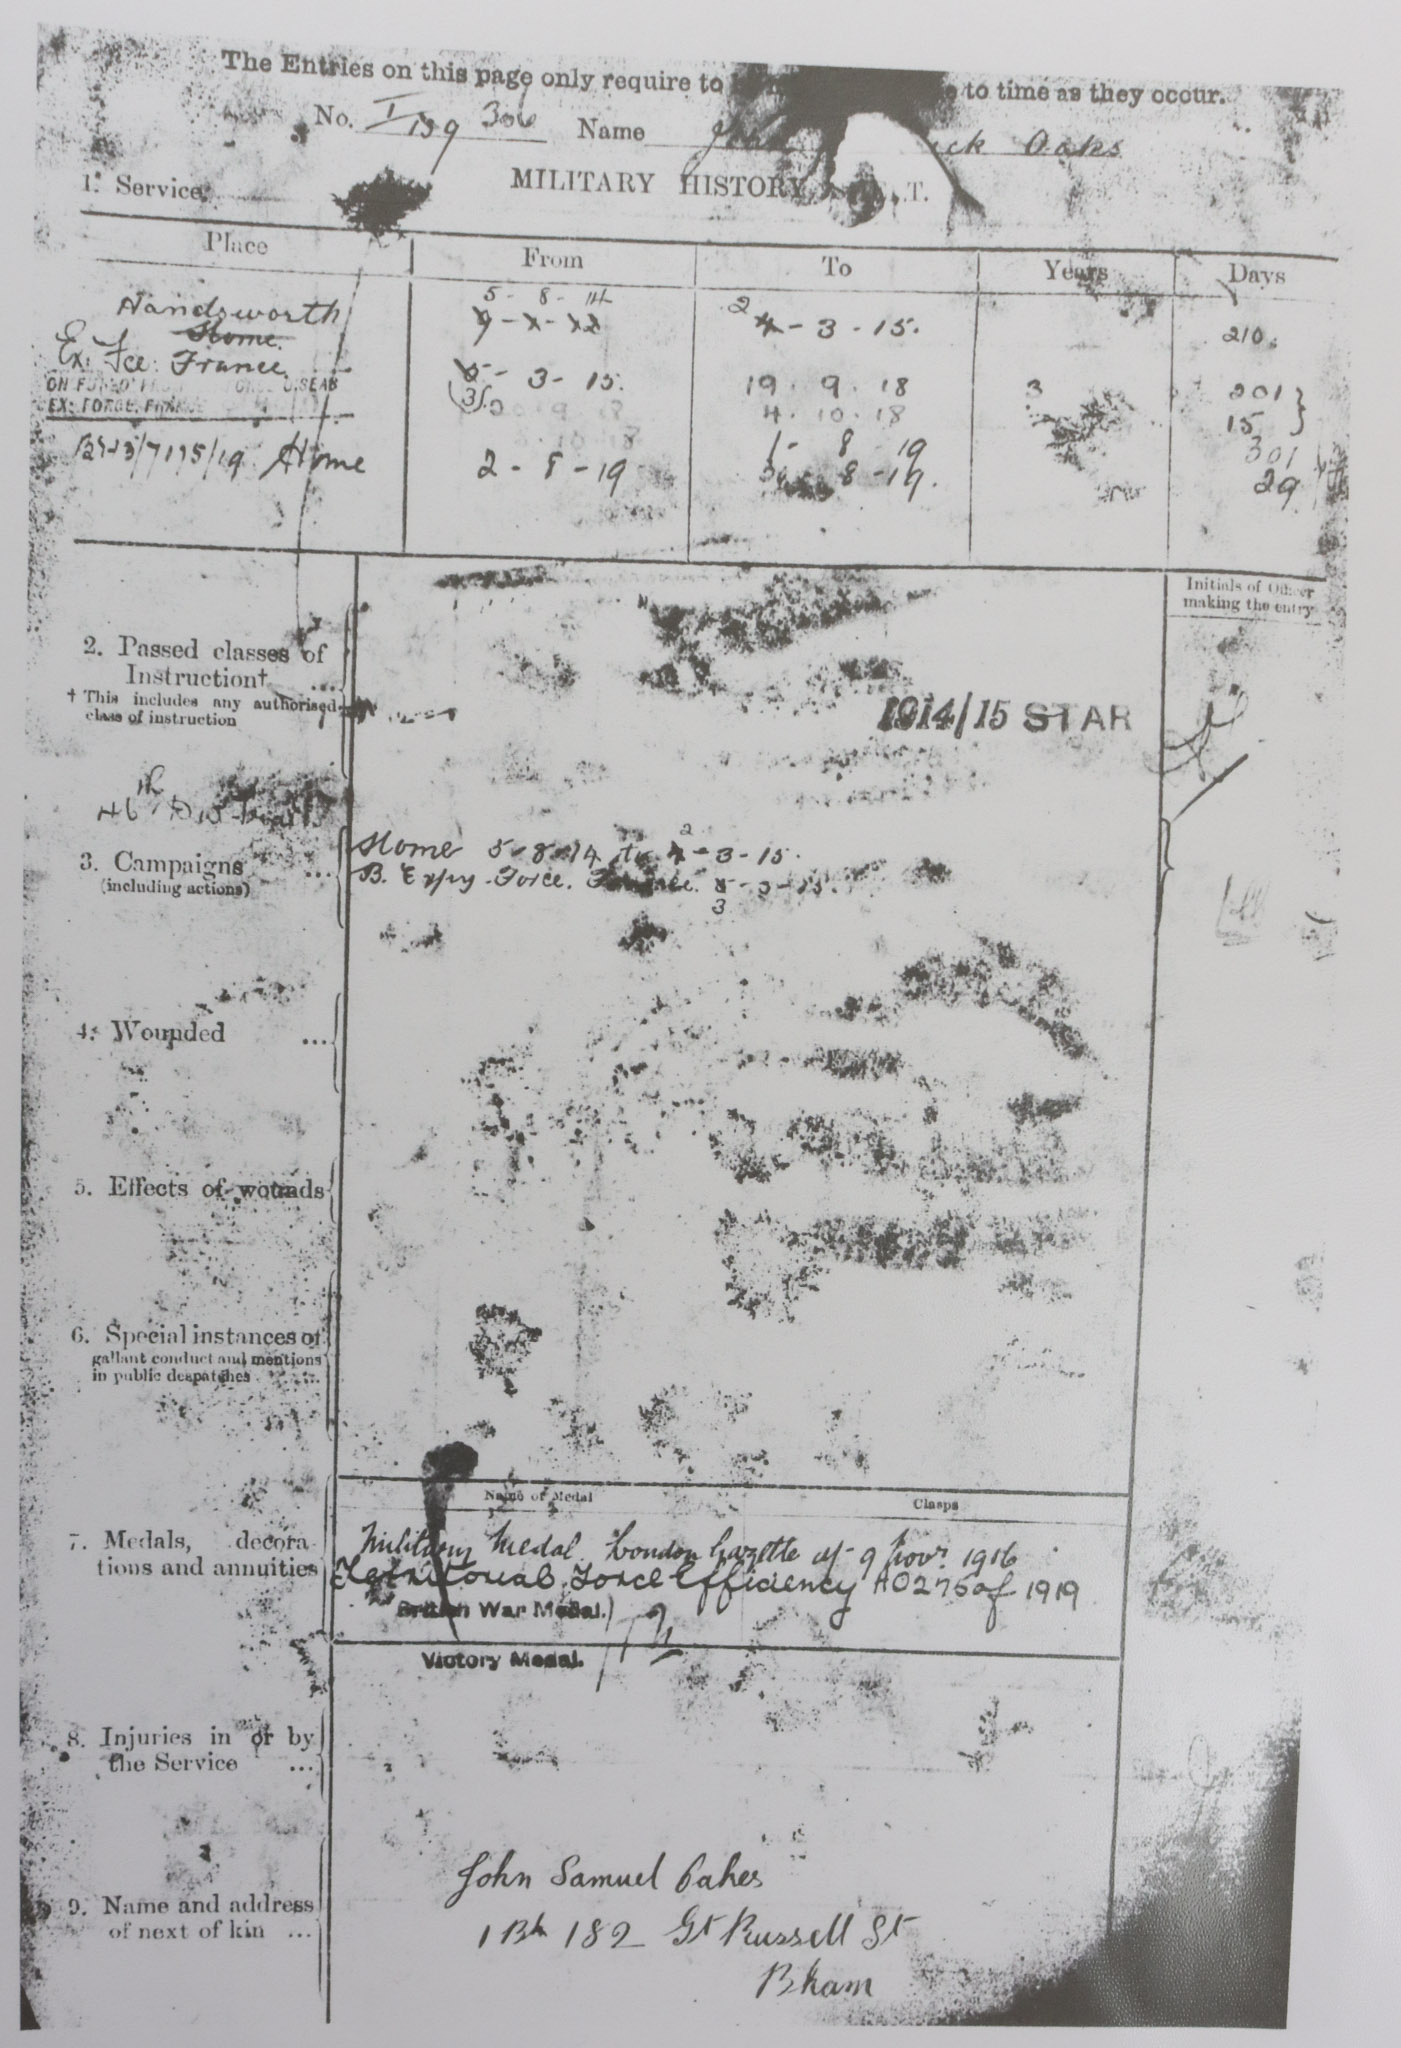 The Entries on this page only require to to time as they occur.
No. 306 Name ck Oakes
1. Service. MILITARY HISTORY
Place From To Years Days
Handsworth 5-8-14 2-3-15. 210.
Home.
Ex: Fce: France 5-3-15. 19.9.18 3 201
(3) 20.9.18 4.10.18 15
EX: FORCE, FRANCE
Home 1-8-19 301
2-8-19 8-19. 29
Initials of Officer
making the entry
2. Passed classes of
Instruction† ...
† This includes any authorised
class of instruction
1914/15 STAR
46th Div
3. Campaigns ...
(including actions)
Home 5-8-14 to 2-3-15.
B. Expy. Force. France. 5-3-15.
3
4. Wounded ...
5. Effects of wounds
6. Special instances of
gallant conduct and mentions
in public despatches ...
Name of Medal Clasps
7. Medals, decora-
tions and annuities
Military Medal. London Gazette of 9 Novr 1916
Territorial Force Efficiency AO275 of 1919
British War Medal.
Victory Medal.
8. Injuries in or by
the Service ...
9. Name and address
of next of kin ...
John Samuel Oakes
1 Bk 182 Gt Russell St
Bham